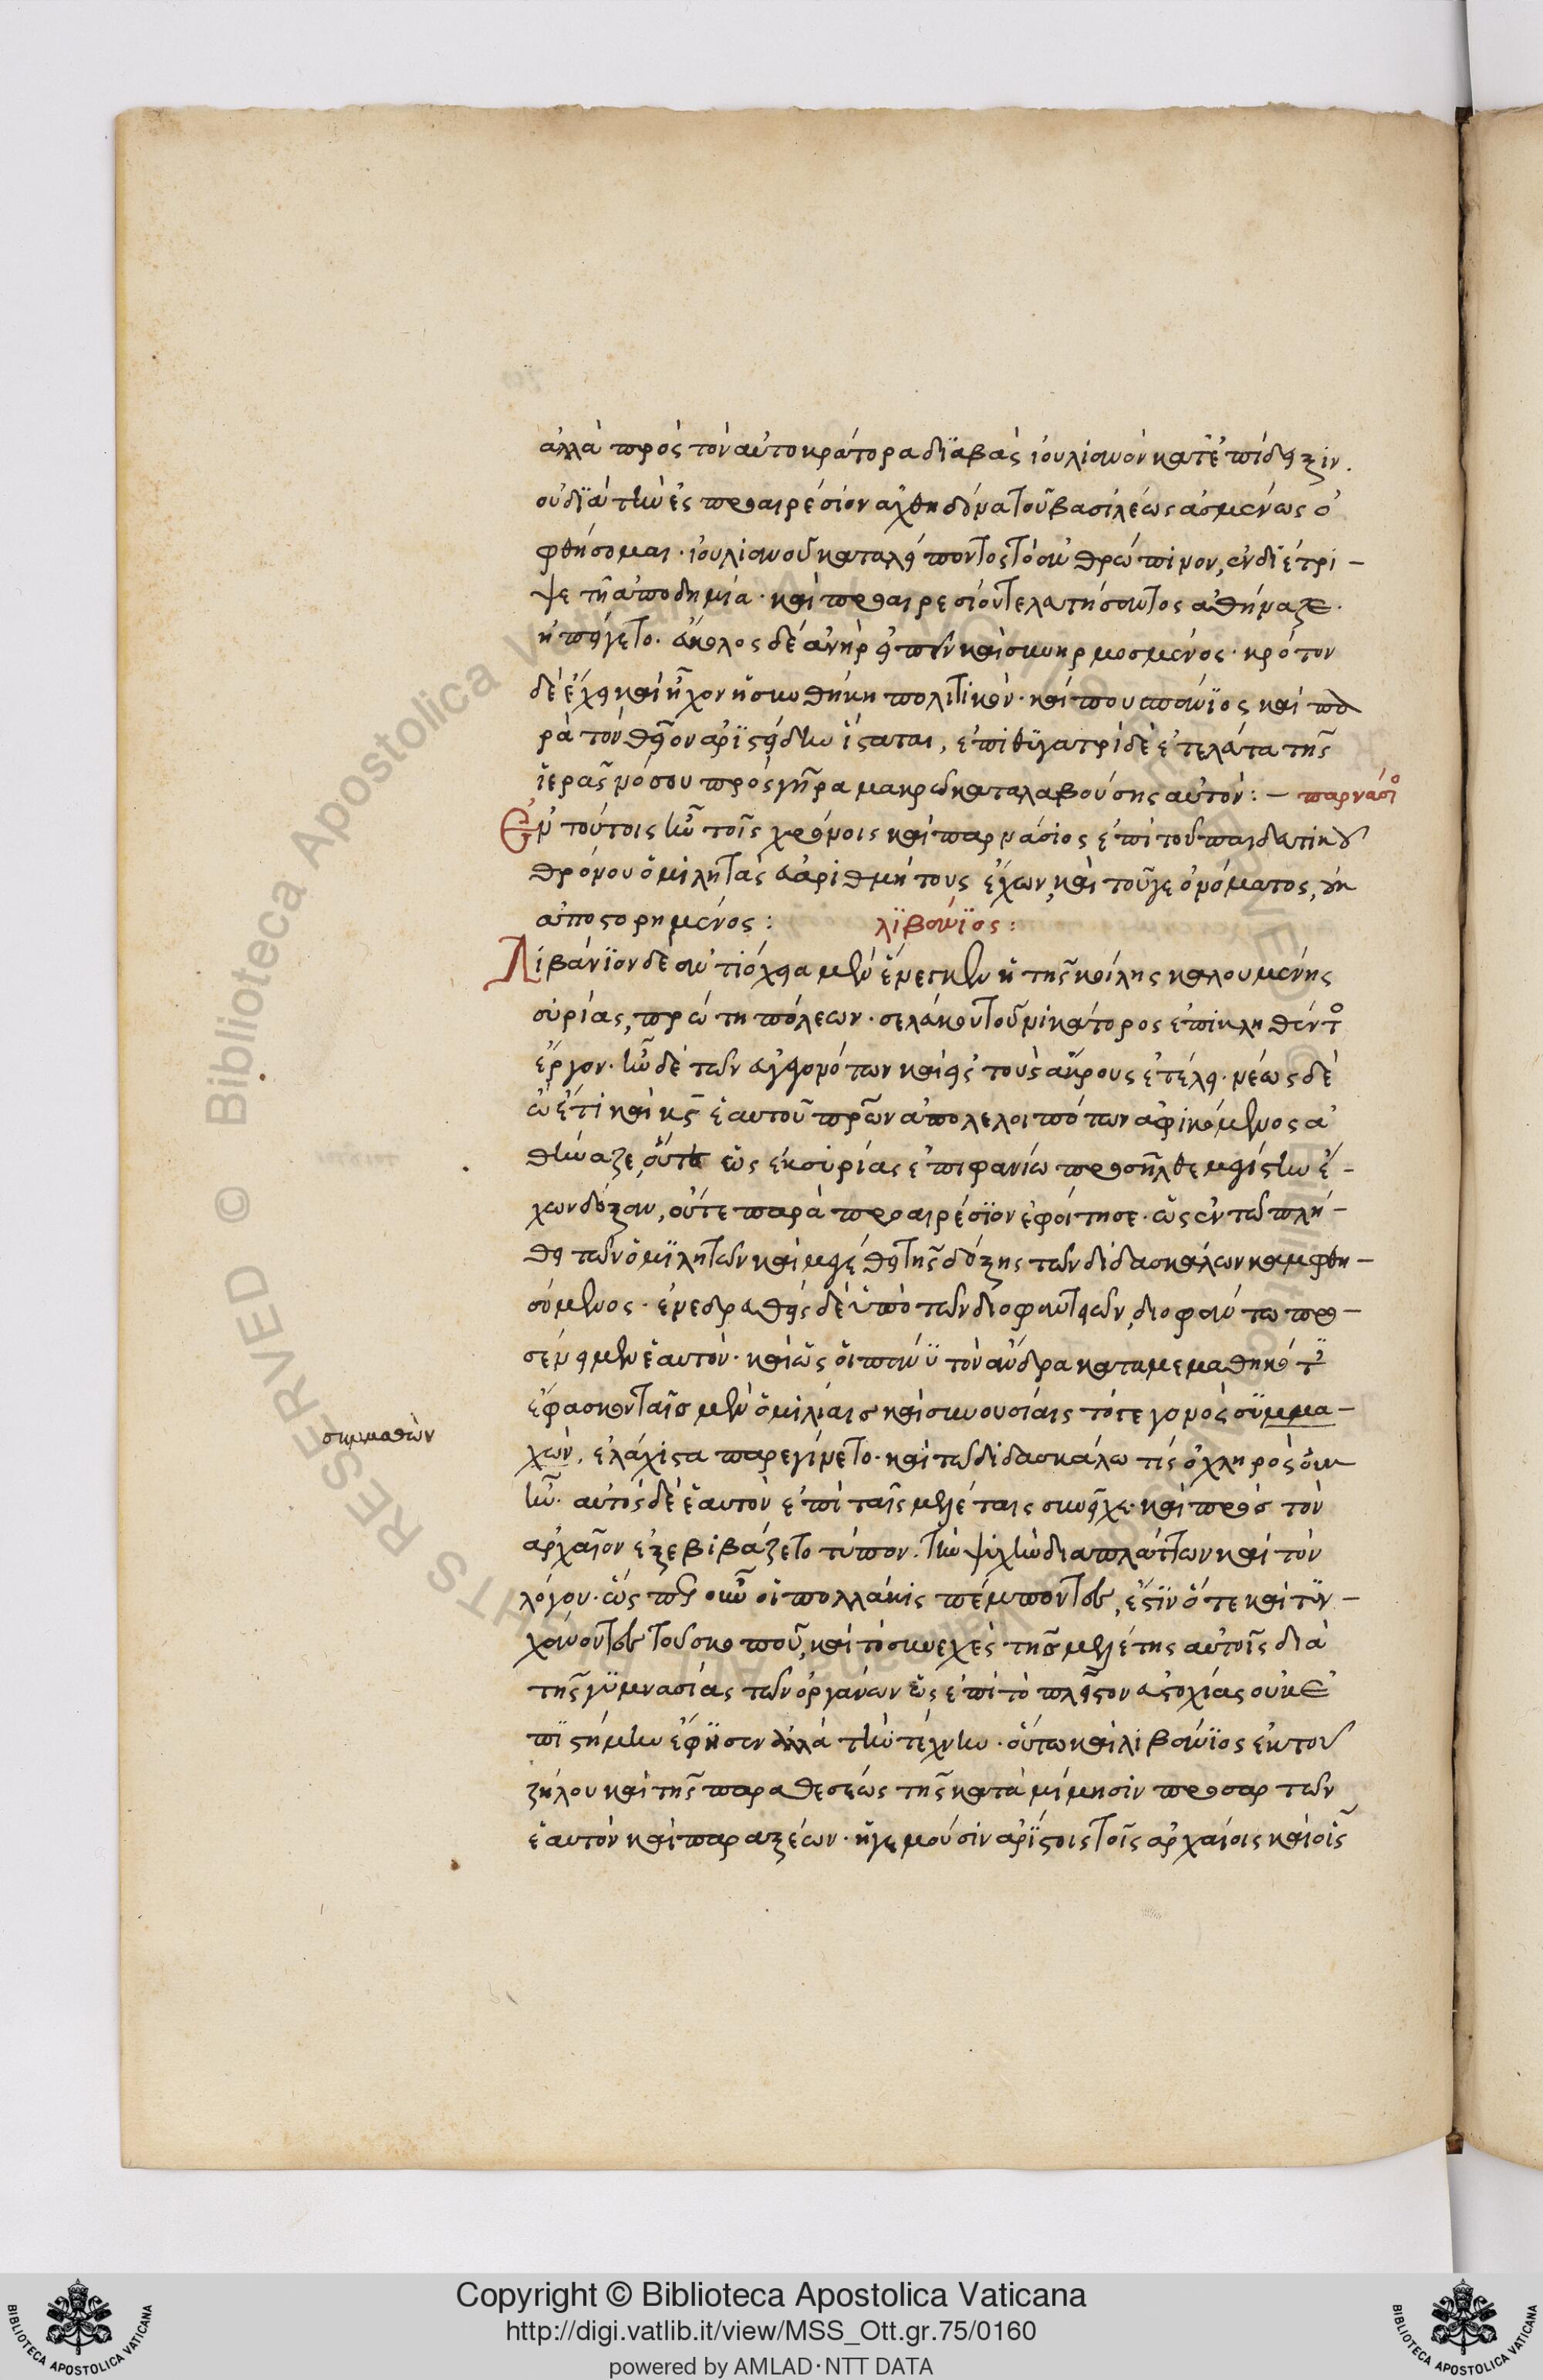 ἀλλὰ πρὸς τὸν αὐτοκράτορα διαβὰς ἰουλιανὸν κατ' ἐπίδειξιν.
οὐ διὰ τὴν ἐς προαιρέσιον ἀχθηδόνα τοῦ βασιλέως ἀσμένως ὀ
φθήσομαι· ἰουλιανοῦ καταλείποντος τὸ ἀνθρώπινον, ἐνδιέτρι-
ψε τῆ ἀποδημία· καὶ προαιρεσίου τελευτήσαντος ἀθήναζε·
ἠπείγετο. εὔκολος δὲ ἀνὴρ εἰπεῖν καὶ συνηρμοσμένος· κρότον
δὲ ἔχει καὶ ἦχον ἡ συνθήκη πολιτικόν· καί που σπανΐος καὶ πα
ρὰ τὸν θεῖον ἀριστείδην ἵσταται, ἐπὶ θυγατρὶ δὲ ἐτελεύτα τῆς
ἱερᾶς νόσου πρὸς γῆρα μακρῶ καταλαβούσης αὐτόν:- παρνάσιος
Ἐν τούτοις ἦν τοῖς χρόνοις καὶ παρνάσιος ἐπὶ τοῦ παιδευτικοῦ
θρόνου ὁμιλητὰς εὐαριθμήτους ἔχων, καὶ τοῦγε ὀνόματος, οὐκ
ἀποστορημένος: λϊβάνϊος:
Λιβάνϊον δὲ ἀντιόχεια μὲν ἤνεγκεν ἡ τῆς κοίλης καλουμένης
συρίας, πρώτη πόλεων· σελεύκου τοῦ νικάτορος ἐπικληθέντος
ἔργον· ἦν δὲ τῶν εὐγεγονότων καὶ εἰς τοὺς ἄκρους ἐτέλει· νέως δὲ
ὢ ἔτι καὶ κς ἑαυτοῦ πρων ἀπολελοιπότων ἀφικόμενος ἀ
θήναζε, οὔτε ὡς ἐκ συρίας ἐπιφανίω προσῆλθε μεγίστην ἔ-
χων δόξαν, οὔτε παρὰ προαιρέσϊον ἐφοίτησε· ὡς ἐν τῶ πλή-
θει τῶν ὁμϊλητῶν καὶ μεγέθει τῆς δόξης τῶν διδασκάλων καλυφθη-
σόμενος· ἐνεδρευθεὶς δὲ ὑπὸ τῶν διοφαντείων, διοφάντω προ-
σένειμεν ἑαυτόν· καὶ ὡς οἱ πάνυ τὸν ἄνδρα καταμεμαθηκότες
ἔφασκον ταῖς μὲν ὁμιλίαις καὶ συνουσίαις τό τε γονὸς σϋμμα-
χών, ἐλάχιστα παρεγίνετο· καὶ τῶ διδασκάλω τὶς ὀχληρὸς οὐκ
ἦν· αὐτὸς δὲ ἑαυτὸν ἐπὶ ταῖς μελέταις συνεῖχε· καὶ πρὸς τὸν
ἀρχαῖον ἐξεβιβάζετο τύπον. τὴν ψυχὴν διαπλάττων καὶ τὸν
λόγον· ὥς περ οὖν οἱ πολλάκις πέμποντες, ἔστϊν ὅτε καὶ τϋν-
χάνοντες τοῦ σκοποῦ, καὶ τὸ συνεχὲς τῆς μελέτης αὐτοῖς διὰ
τῆς γϋμνασίας τῶν ὀργάνων ὡς ἐπὶ τὸ πλεῖστον εὐστοχίας οὐκ ἐ
πϊστήμην ἔφϋσεν ἀλλὰ τὴν τέχνην· οὕτω καὶ λιβάνϊος ἐκ τοῦ
ζήλου καὶ τῆς παραθέσεως τῆς κατὰ μίμησιν προσαρτῶν
ἑαυτὸν καὶ παραξέων· ἡγεμόυσιν ἀρίστοις τοῖς ἀρχαίοις καὶ οἷς
συμμαθὼν
Copyright © Biblioteca Apostolica Vaticana
http://digi.vatlib.it/view/MSS_Ott.gr.75/0160
powered by AMLAD·NTT DATA